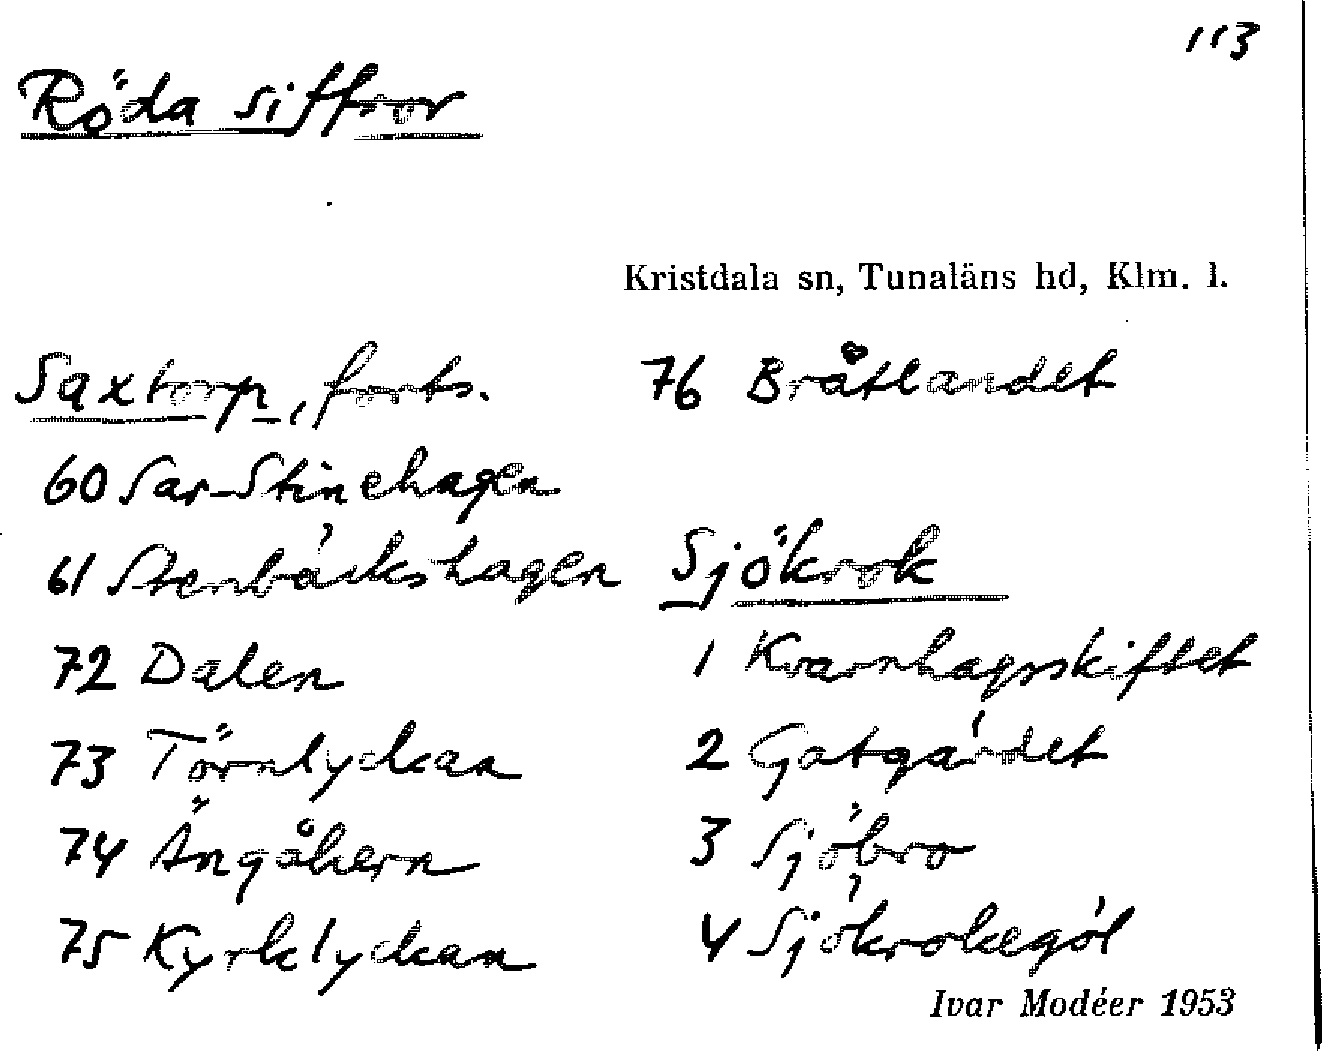 113
Röda siffror
Kristdala sn, Tunaläns hd, Klm. l.
Saxtorp, forts.
60 Sar-Stinehagen
61 Stenbäckshagen
72 Dalen
73 Törnlyckan
74 Ängåkern
75 Kyrklyckan
76 Bråtlandet
Sjökrok
1 Kvarnhagsskiftet
2 Gatgärdet
3 Sjöbro
4 Sjökrokegöl
Ivar Modéer 1953